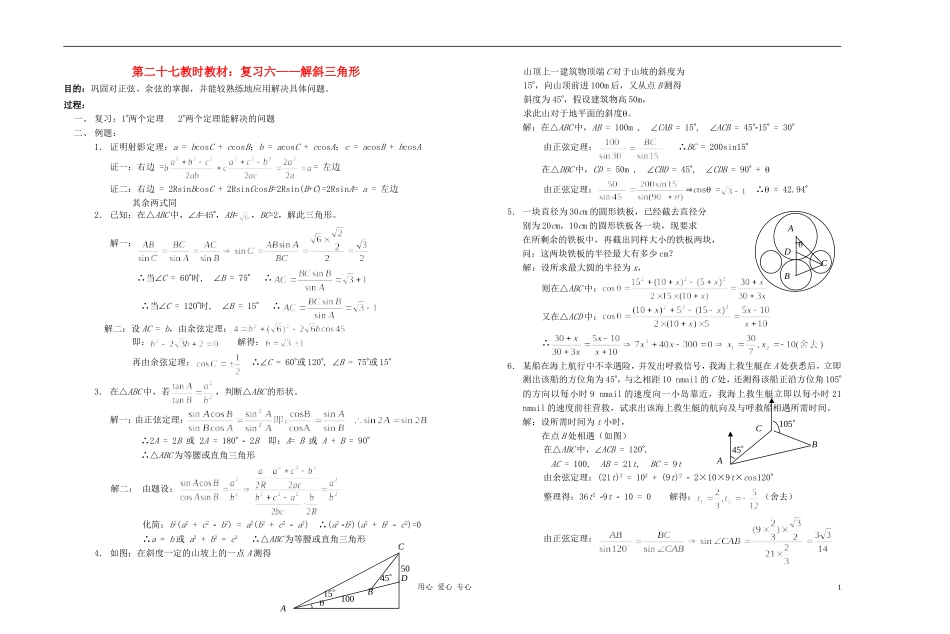 第二十七教时教材：复习六——解斜三角形
目的：巩固对正弦、余弦的掌握，并能较熟练地应用解决具体问题。
过程：
一、 复习：1°两个定理 2°两个定理能解决的问题
二、 例题：
1. 证明射影定理：a = bcosC + ccosB；b = acosC + ccosA；c = acosB + bcosA
证一：右边 =b (a² + b² - c²)/2ab c (a² + c² - b²)/2ac 2a²/2a a = 左边
证二：右边 = 2RsinBcosC + 2RsinCcosB=2Rsin(B+C)=2RsinA= a = 左边
其余两式同
2. 已知：在△ABC中，∠A=45°，AB=√6，BC=2，解此三角形。
解一：AB/sinC = BC/sinA = AC/sinB ⇒ sinC = ABsinA/BC = (√6×√2/2)/2 = √3/2
∴当∠C = 60°时， ∠B = 75° ∴AC = BCsinB/sinA = √3+1
∴当∠C = 120°时， ∠B = 15° ∴AC = BCsinB/sinA = √3-1
解二：设 AC = b，由余弦定理：4 = b² + (√6)² - 2√6bcos45
即：b² - 2√3b + 2 = 0 解得：b = √3±1
再由余弦定理：cosC = ±1/2 ∴∠C = 60°或120°, ∠B = 75°或15°
3. 在△ABC中，若 tanA/tanB = a²/b²，判断△ABC的形状。
解一：由正弦定理：sinAcosB/sinBcosA = sin²A/sin²B 即：cosB/cosA = sinA/sinB ∴sin2A = sin2B
∴2A = 2B 或 2A = 180° - 2B 即：A= B 或 A + B = 90°
∴△ABC为等腰或直角三角形
解二： 由题设：sinAcosB/cosAsinB = a²/b² ⇒ (a/2R · (a² + c² - b²)/2ac)/((b² + c² - a²)/2bc · b/2R) = a²/b²
化简：b²(a² + c² - b²) = a²(b² + c² - a²) ∴(a²-b²)(a² + b² - c²)=0
∴a = b或 a² + b² = c² ∴△ABC为等腰或直角三角形
4. 如图：在斜度一定的山坡上的一点 A测得
C
50
45°
D
15°
B
θ
100
A
山顶上一建筑物顶端C对于山坡的斜度为
15°，向山顶前进100m后，又从点B测得
斜度为45°，假设建筑物高50m，
求此山对于地平面的斜度θ。
解：在△ABC中，AB = 100m , ∠CAB = 15°, ∠ACB = 45°-15° = 30°
由正弦定理：100/sin30 = BC/sin15 ∴BC = 200sin15°
在△DBC中，CD = 50m , ∠CBD = 45°, ∠CDB = 90° + θ
由正弦定理：50/sin45 = 200sin15/sin(90 + θ) ⇒cosθ =√3-1 ∴θ = 42.94°
5. 一块直径为30cm的圆形铁板，已经截去直径分
别为20cm，10cm的圆形铁板各一块，现要求
在所剩余的铁板中，再截出同样大小的铁板两块，
问：这两块铁板的半径最大有多少cm？
解：设所求最大圆的半径为 x，
则在△ABC中：cosθ = (15² + (10 + x)² - (5 + x)²)/(2×15×(10 + x)) = (30 + x)/(30 + 3x)
又在△ACD中：cosθ = ((10 + x)² + 5² - (15 - x)²)/(2×(10 + x)×5) = (5x - 10)/(x + 10)
∴(30 + x)/(30 + 3x) = (5x - 10)/(x + 10) ⇒ 7x² + 40x - 300 = 0 ⇒ x₁ = 30/7, x₂ = -10(舍去)
A
θ
D
C
B
6. 某船在海上航行中不幸遇险，并发出呼救信号，我海上救生艇在 A处获悉后，立即
测出该船的方位角为45°，与之相距10 nmail的C处，还测得该船正沿方位角105°
的方向以每小时9 nmail的速度向一小岛靠近，我海上救生艇立即以每小时21
nmail的速度前往营救，试求出该海上救生艇的航向及与呼救船相遇所需时间。
解：设所需时间为 t小时，
在点 B处相遇（如图）
在△ABC中，∠ACB = 120°,
AC = 100, AB = 21t, BC = 9t
由余弦定理：(21t)² = 10² + (9t)² - 2×10×9t×cos120°
整理得：36t² -9t - 10 = 0 解得：t₁ = 2/3, t₂ = -5/12（舍去）
由正弦定理：AB/sin120 = BC/sin∠CAB ⇒ sin∠CAB = ((9×2/3)×√3/2)/(21×2/3) = 3√3/14
105°
C
B
45°
A
用心 爱心 专心
1